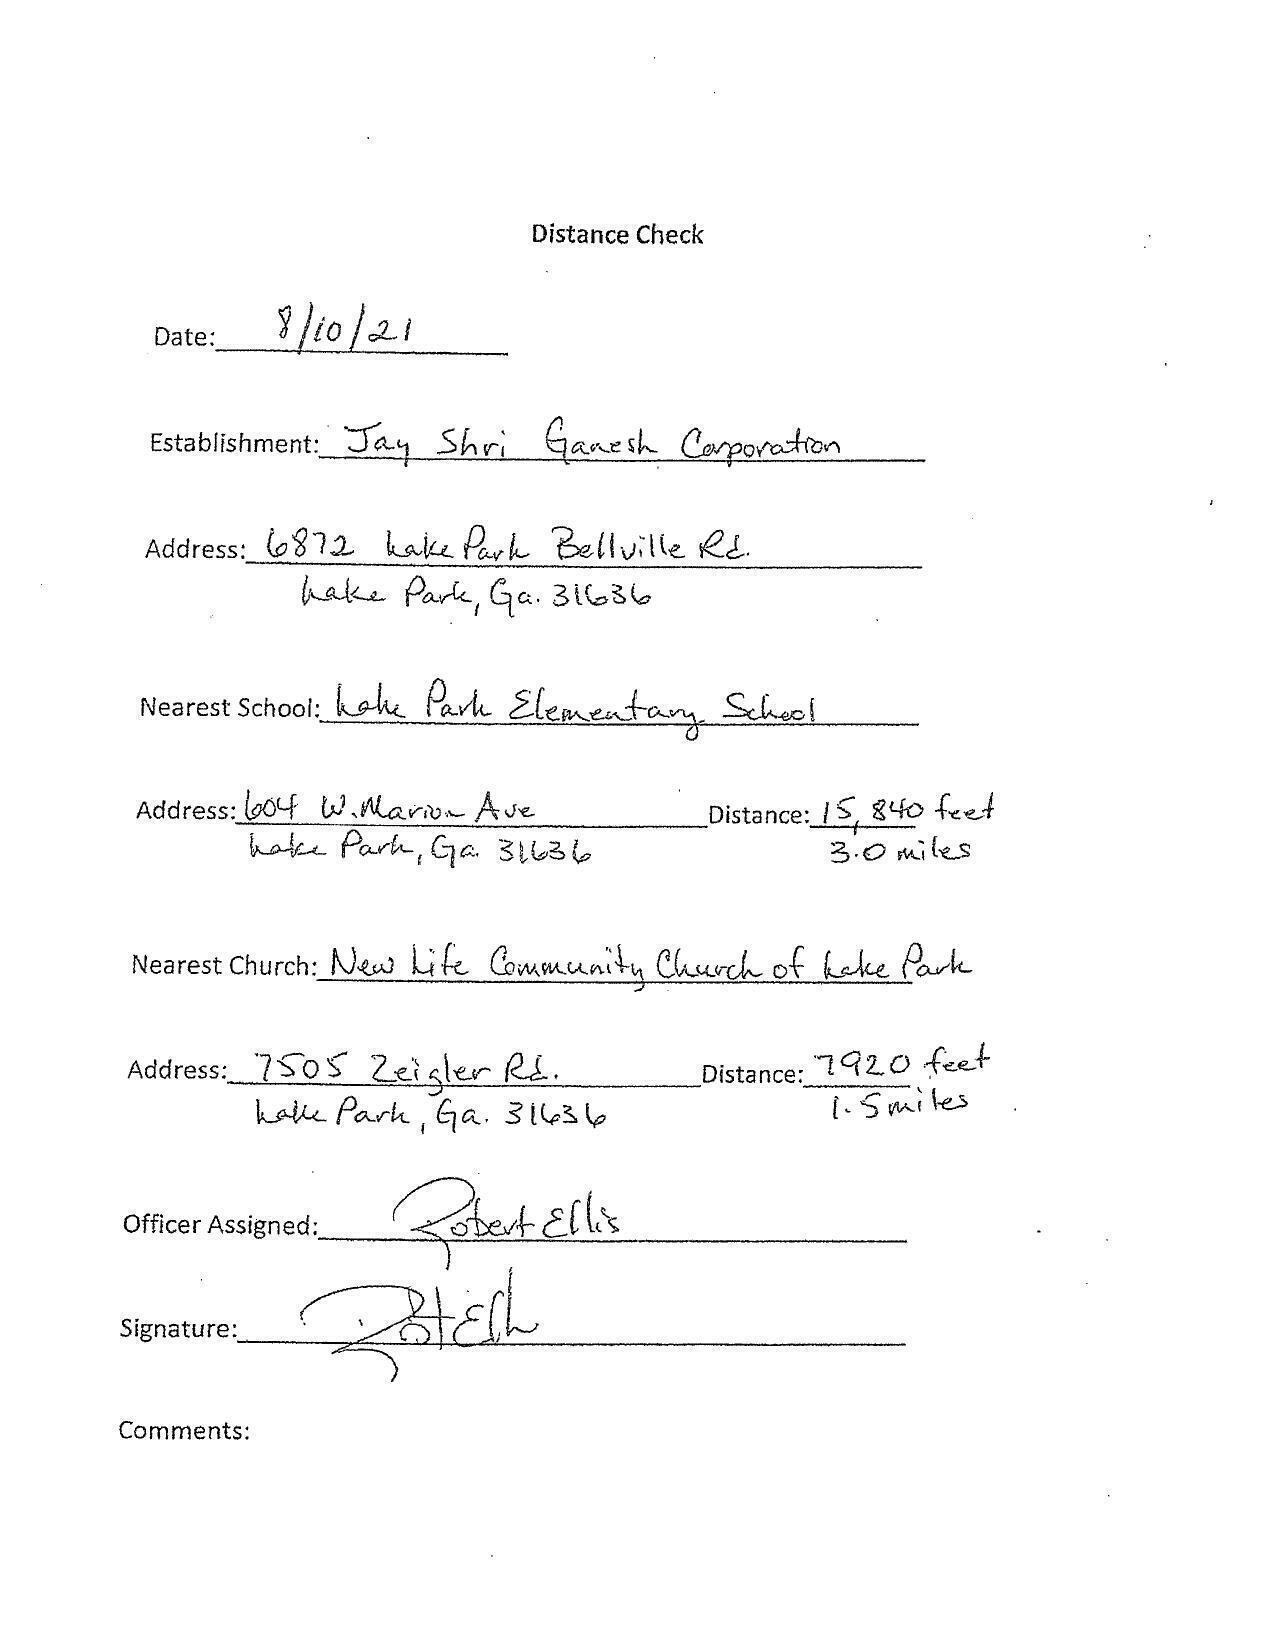 Distance Check
Date: 8/10/21
Establishment: Jay Shri Ganesh Corporation
Address: 6872 Lake Park Bellville Rd.
Lake Park, Ga. 31636
Nearest School: Lake Park Elementary School
Address: 604 W. Marion Ave Distance: 15,840 feet
Lake Park, Ga. 31636 3.0 miles
Nearest Church: New Life Community Church of Lake Park
Address: 7505 Zeigler Rd. Distance: 7920 feet
Lake Park, Ga. 31636 1.5 miles
Officer Assigned: Robert Ellis
Signature: Robt Ells
Comments: